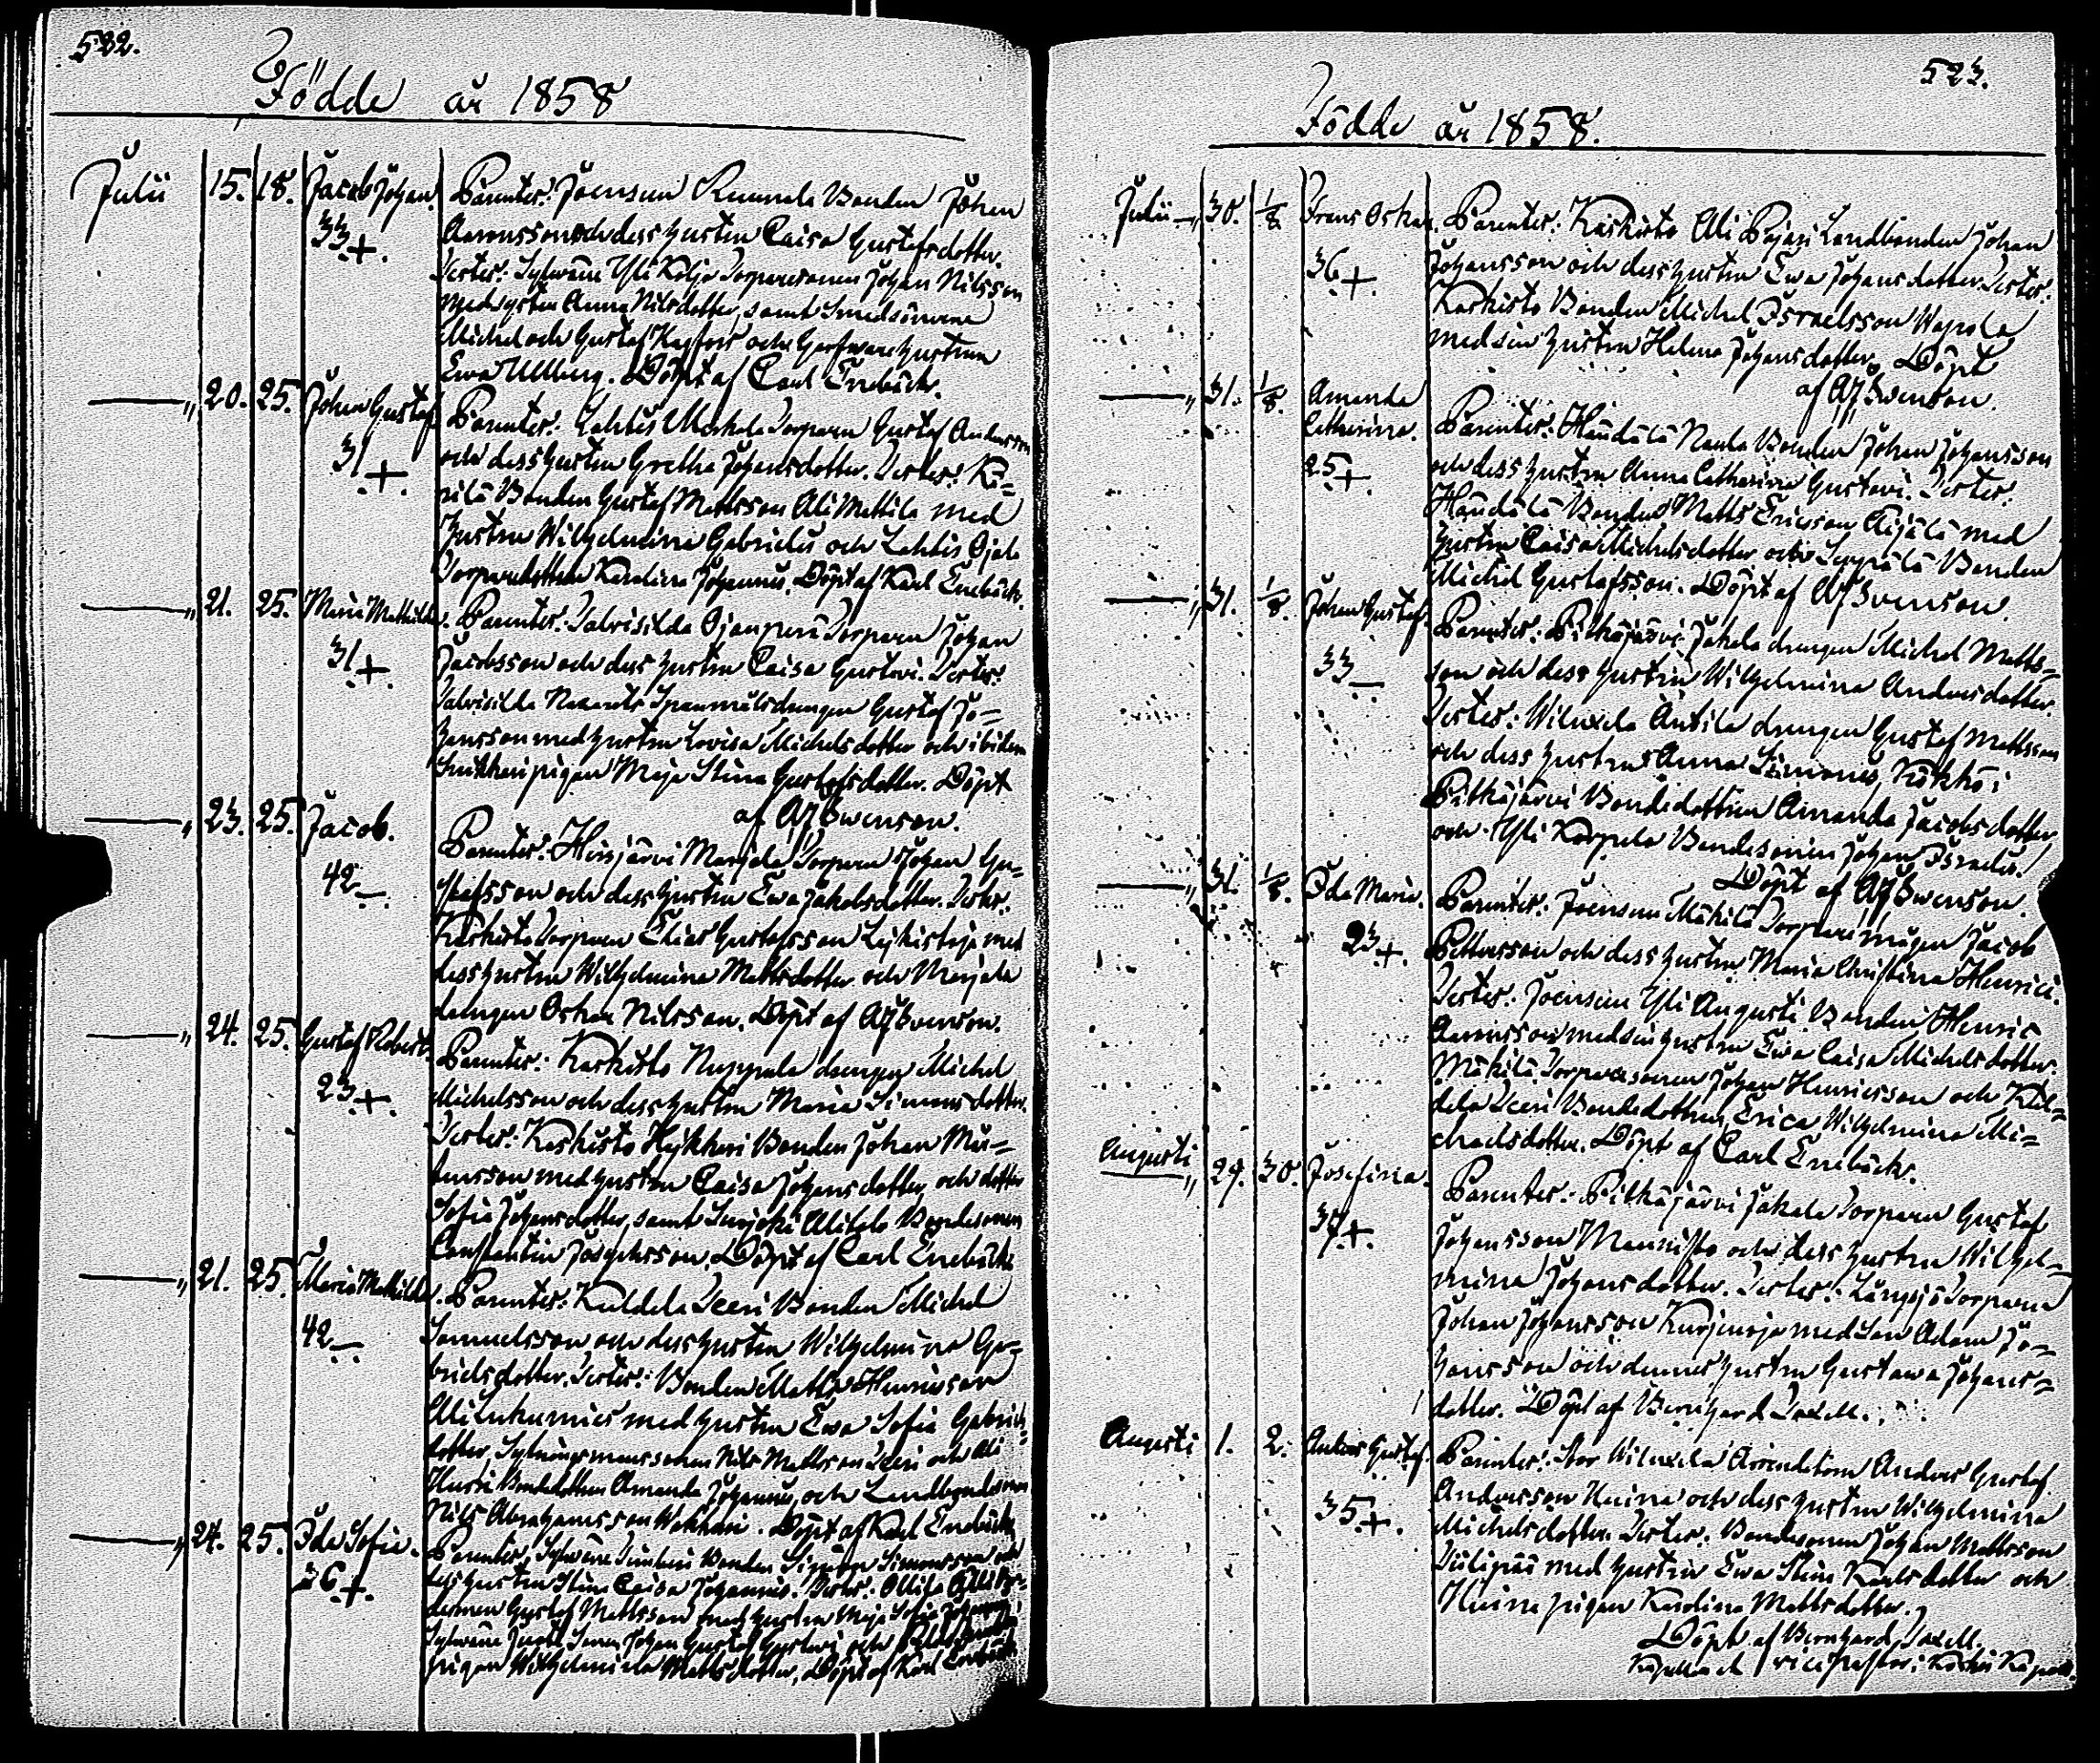 522.
Födde år 1858
Julii 15. 18. Jacob Johan. Parenter: Joensuu Knuuvela Bonden Johan
33 + Aaronsson och dess hustru Caisa Gustafsdotter.
Testes: Sylwäne Yli Kolja Torparesonen Johan Nilsson
med systern Anna Nilsdotter, samt Smedsönerne
Michel och Gustaf och hustrun
Ewa Ullberg. Döpt af Carl Enebäck.
— " 20. 25. Johan Gustaf. Parenter: Lahtis Markela Torparen Gustaf Andersson
31 + och dess hustru Gretha Johansdotter. Testes: Ka=
rilä Bonden Gustaf Mattsson Ali Mattila med
hustru Wilhelmina Gabrielis och Lahtis Ojala
Torparedottren Karolina Johannis. Döpt af Karl Enebäck.
— " 21. 25. Maria Mathilda. Parenter: Talvisilda Ojanperä Torparen Johan
31 + Jacobsson och dess hustru Caisa Gustavi. Testes:
Talvisilda drengen Gustaf Jo=
hansson med hustru Lovisa Michelsdotter och ibidem
pigan Maja Stina Gustafsdotter. Döpt
af AJ Swenson.
— " 23. 25. Jacob. Parenter: Hirsjärvi Marjala Torparen Johan Gu=
42 — stafsson och dess hustru Ewa Jakobsdotter. Testes:
Karkisto Torparen Elias Gustafsson med
dess hustru Wilhelmina Mattsdotter och Marjala
drengen Oskar Nilsson. Döpt af AJ Swenson.
— " 24. 25. Gustaf Robert. Parenter: Karkisto Nuppula drengen Michel
23 + Michelsson och dess hustru Maria Simonsdotter.
Testes: Karkisto Heikkari Bonden Johan
med hustru Caisa Johansdotter och dotter
Sofia Johansdotter, samt Surjoki Alitalo Bondesonen
Constantin Josephsson. Döpt af Carl Enebäck
— " 21. 25. Maria Mathilda. Parenter: Kuldela Teeri Bonden Michel
42 — Samuelsson och dess hustru Wilhelmina Ga=
brielsdotter. Testes: Bonden Matts Henricsson
med hustru Ewa Sofia Gabriels=
dotter, sonen Nils Mattsson Teeri och Ali
Hussi Bondedottren Amanda Johannis, och Landbondesonen
Nils Abrahamsson. Döpt af Karl Enebäck
— " 24. 25. Ida Sofia. Parenter: Sylwäne Bonden Simon Simonsson och
26 + dess hustru Stina Caisa Johannis. Testes:
Gustaf Mattsson med hustru Maja Sofia
Sylwäne Johan Gustaf Gustavi och
pigan Wilhelmina Mattsdotter. Döpt af Karl Enebäck
523.
Födde år 1858.
Julii — " 30. 1/8 Frans Oskar. Parenter: Karkisto Ali Pejari Landbonden Johan
36 + Johansson och dess hustru Ewa Johansdotter. Testes:
Karkisto Bonden Michel Israelsson Wapola
med sin hustru Helena Johansdotter. Döpt
af AJ Swenson.
— " 31. 1/8. Amanda Catharina. Parenter: Handälä Nauha Bonden Johan Johansson
25 + och dess hustru Anna Catharina Gustavi. Testes:
Handälä Bonden Matts Ericson Äijälä med
hustru Caisa Michelsdotter och Seppälä Bonden
Michel Gustafsson. Döpt af AJ Swenson.
— " 31. 1/8. Johan Gustaf. Parenter: Pitkäjärvi Jakala drengen Michel Matts=
33 — son och dess hustru Wilhelmina Andersdotter.
Testes: Wiluxela Antila drengen Gustaf Mattsson
och dess hustru Anna Simonis, Kökkö i
Pitkäjärvi Bondedottren Amanda Jacobsdotter
och Yli Korpela Bondesonen Johan Israelis.
Döpt af AJ Swenson.
— " 31. 1/8. Ida Maria. Parenter: Joensuu Mäkilä Torparemågen Jacob
23 + Pettersson och dess hustru Maria Christina Henrici.
Testes: Joensuu Yli Augusti Bonden Henric
Aaronsson med sin hustru Ewa Caisa Michelsdotter,
Mäkilä Torparesonen Johan Henricsson och Kul=
dela Teeri Bondedottren Erica Wilhelmina Mi=
chaelsdotter. Döpt af Carl Enebäck.
Augusti — " 29. 30. Josefina. Parenter: Pitkäjärvi Jakala Torparen Gustaf
37 + Johansson Mannisto och dess hustru Wilhel=
mina Johansdotter. Testes: Långsjö Torparen
Johan Johansson med son Adam Jo=
hansson och dennes hustru Gustawa Johans=
dotter. Döpt af Bernhard Taxell.
Augusti 1. 2. Anders Gustaf. Parenter: Stor Wiluxela Arrendatorn Anders Gustaf
35 + Andersson Huina och dess hustru Wilhelmina
Michelsdotter. Testes: Bondesonen Johan Mattsson
med hustru Ewa Stina Karlsdotter och
Huina pigan Karolina Mattsdotter.
Döpt af Bernhard Taxell.
vice pastor i Koskis Kapell.